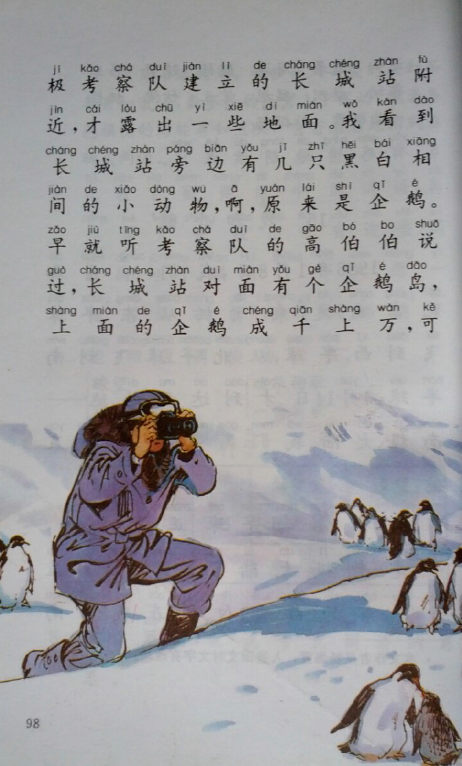 jí kǎo chá duì jiàn lì de cháng chéng zhàn fù
极考察队建立的长城站附
jìn cái lòu chū yì xiē dì miàn wǒ kàn dào
近，才露出一些地面。我看到
cháng chéng zhàn páng biān yǒu jǐ zhī hēi bái xiāng
长城站旁边有几只黑白相
jiàn de xiǎo dòng wù ā yuán lái shì qǐ é
间的小动物，啊，原来是企鹅。
zǎo jiù tīng kǎo chá duì de gāo bó bo shuō
早就听考察队的高伯伯说
guò cháng chéng zhàn duì miàn yǒu gè qǐ é dǎo
过，长城站对面有个企鹅岛，
shàng miàn de qǐ é chéng qiān shàng wàn kě
上面的企鹅成千上万，可
98